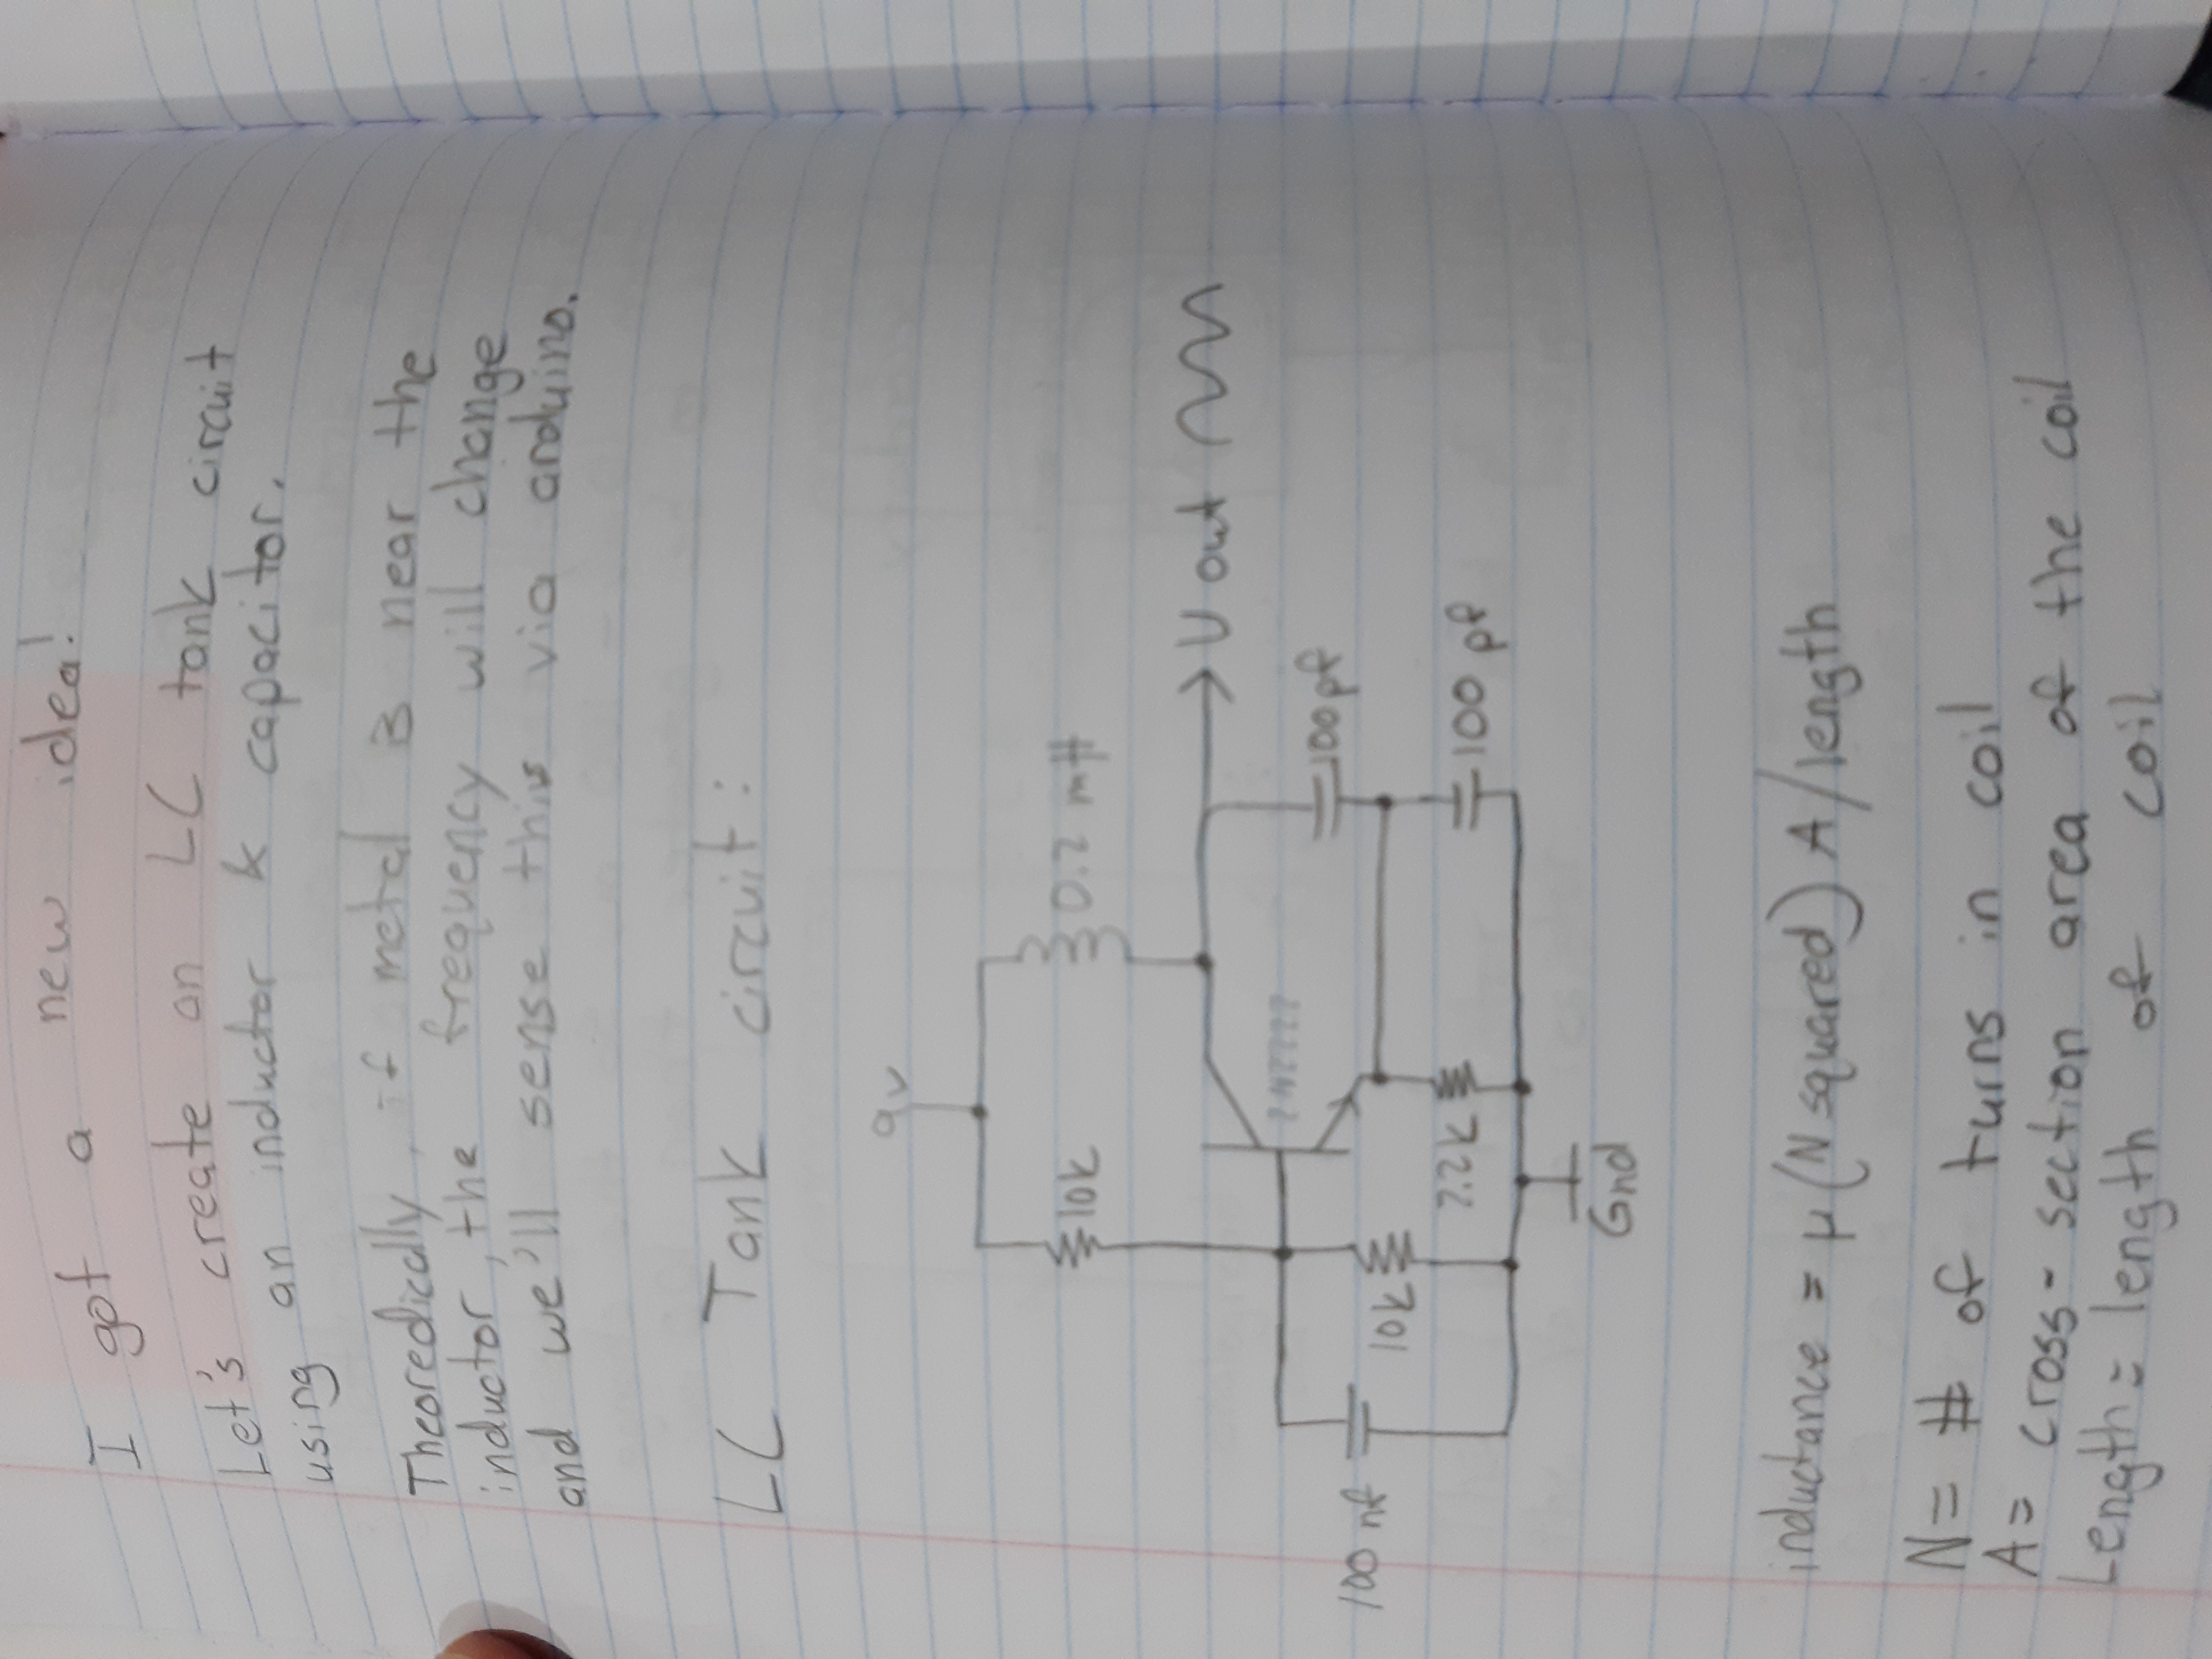 I got a new idea!
Let's create an LC tank circuit
using an inductor & capacitor.
Theoredically, if metal is near the
inductor, the frequency will change
and we'll sense this via arduino.
LC Tank circuit:
9v
10k
0.2 mH
V out
2N2222
100pf
100 nf
10k
2.2k
100 pf
Gnd
inductance = μ(N squared) A/length
N = # of turns in coil
A = cross-section area of the coil
Length = length of coil